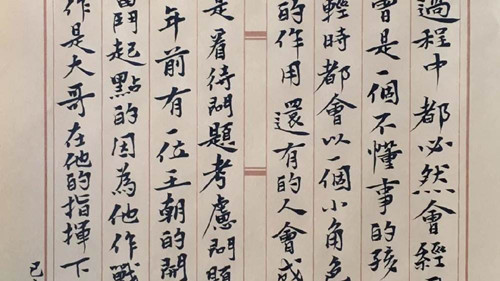 過程中都必然會經
曾是一個不懂事的孩
輕時都會以一個小角色
的作用還有的人會成
是看待問題考慮問題
年前有一位王朝的開
奮鬥起點的因為他作戰
作是大哥在他的指揮下